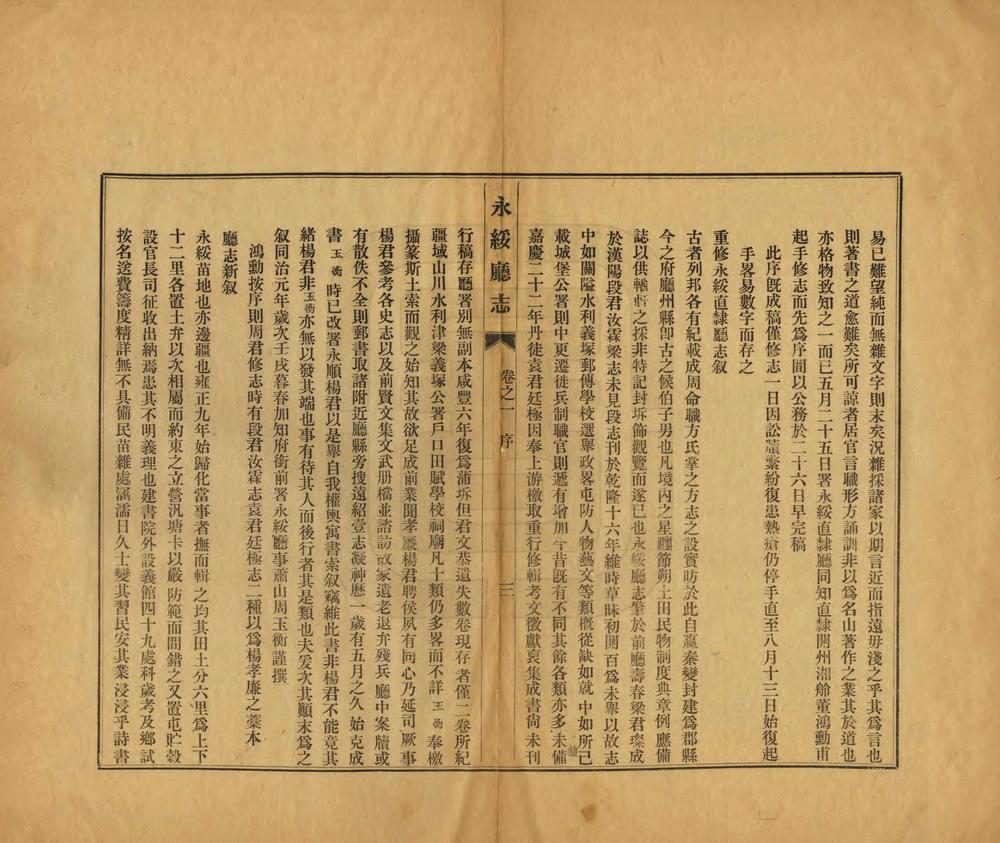 易已難望純而無雜文字則末矣況雜採諸家以期言近而指遠毋淺之乎其為言也
則著書之道愈難矣所可諒者居官言職形方誦訓非以為名山著作之業其於道也
亦格物致知之一而已五月二十五日署永綏直隸廳同知直隸開州湘舲董鴻勳甫
起手修志而先為序間以公務於二十六日早完稿
此序既成稿僅修志一日因訟牘繁紛復患熱瘡仍停手直至八月十三日始復起
手畧易數字而存之
重修永綏直隸廳志叙
古者列邦各有紀載成周命職方氏掌之方志之設實昉於此自嬴秦變封建為郡縣
今之府廳州縣卽古之候伯子男也凡境內之星躔節朔土田民物制度典章例應備
誌以供輶軒之採非特記封圻飾觀覽而遂已也永綏廳志肇於前廳壽春梁君瑔成
於漢陽段君汝霖梁志未見段志刊於乾隆十六年維時草昧初開百為未舉以故志
中如關隘水利義塚郵傳學校選舉政畧屯防人物藝文等類槪從缺如就中如所已
載城堡公署則中更遷徙兵制職官則遞有增加今昔旣有不同其餘各類亦多未備
嘉慶二十二年丹徒袁君廷極因奉上游檄取重行修輯考文徵獻裒集成書尙未刊
永綏廳志 卷之一 序 三
行稿存廳署別無副本咸豐六年復為蒲圻但君文恭遺失數卷現存者僅二卷所紀
疆域山川水利津梁義塚公署戶口田賦學校祠廟凡十類仍多畧而不詳玉衡奉檄
攝篆斯土索而觀之始知其故欲足成前業聞孝廉楊君聘侯夙有同心乃延司厥事
楊君參考各史志以及前賢文集文武册檔並諮訪故家遺老退弁殘兵廳中案牘或
有散佚不全則郵書取諸附近廳縣旁搜遠紹壹志凝神歷一歲有五月之久始克成
書玉衡時已改署永順楊君以是舉自我權輿寓書索叙竊維此書非楊君不能竟其
緒楊君非玉衡亦無以發其端也事有待其人而後行者其是類也夫爰次其顚末為之
叙同治元年歲次壬戌暮春加知府銜前署永綏廳事蕭山周玉衡謹撰
鴻勳按序則周君修志時有段君汝霖志袁君廷極志二種以為楊孝廉之藁本
廳志新叙
永綏苗地也亦邊疆也雍正九年始歸化當事者撫而輯之均其田土分六里為上下
十二里各置土弁以次相屬而約束之立營汛塘卡以嚴防範而間錯之又置屯貯穀
設官長司征收出納焉患其不明義理也建書院外設義館四十九處科歲考及鄉試
按名送費籌度精詳無不具備民苗雜處濡濡日久士變其習民安其業浸浸乎詩書